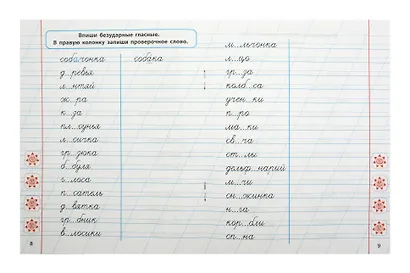 Впиши безударные гласные.
В правую колонку запиши проверочное слово.
собачонка собака
д..ревья
л..нтяй
ж..ра
к..за
пл..сунья
л..сичка
гр..зюка
б..буля
г..лоса
п..сатель
д..вятка
гр..бник
в..лосики
8
м..льчонка
л..цо
гр..за
колб..са
учен..ки
п..ро
ма..ки
св..ча
ст..лы
дельф..нарий
м..чи
сн..жинка
н..га
кор..бли
сп..на
9